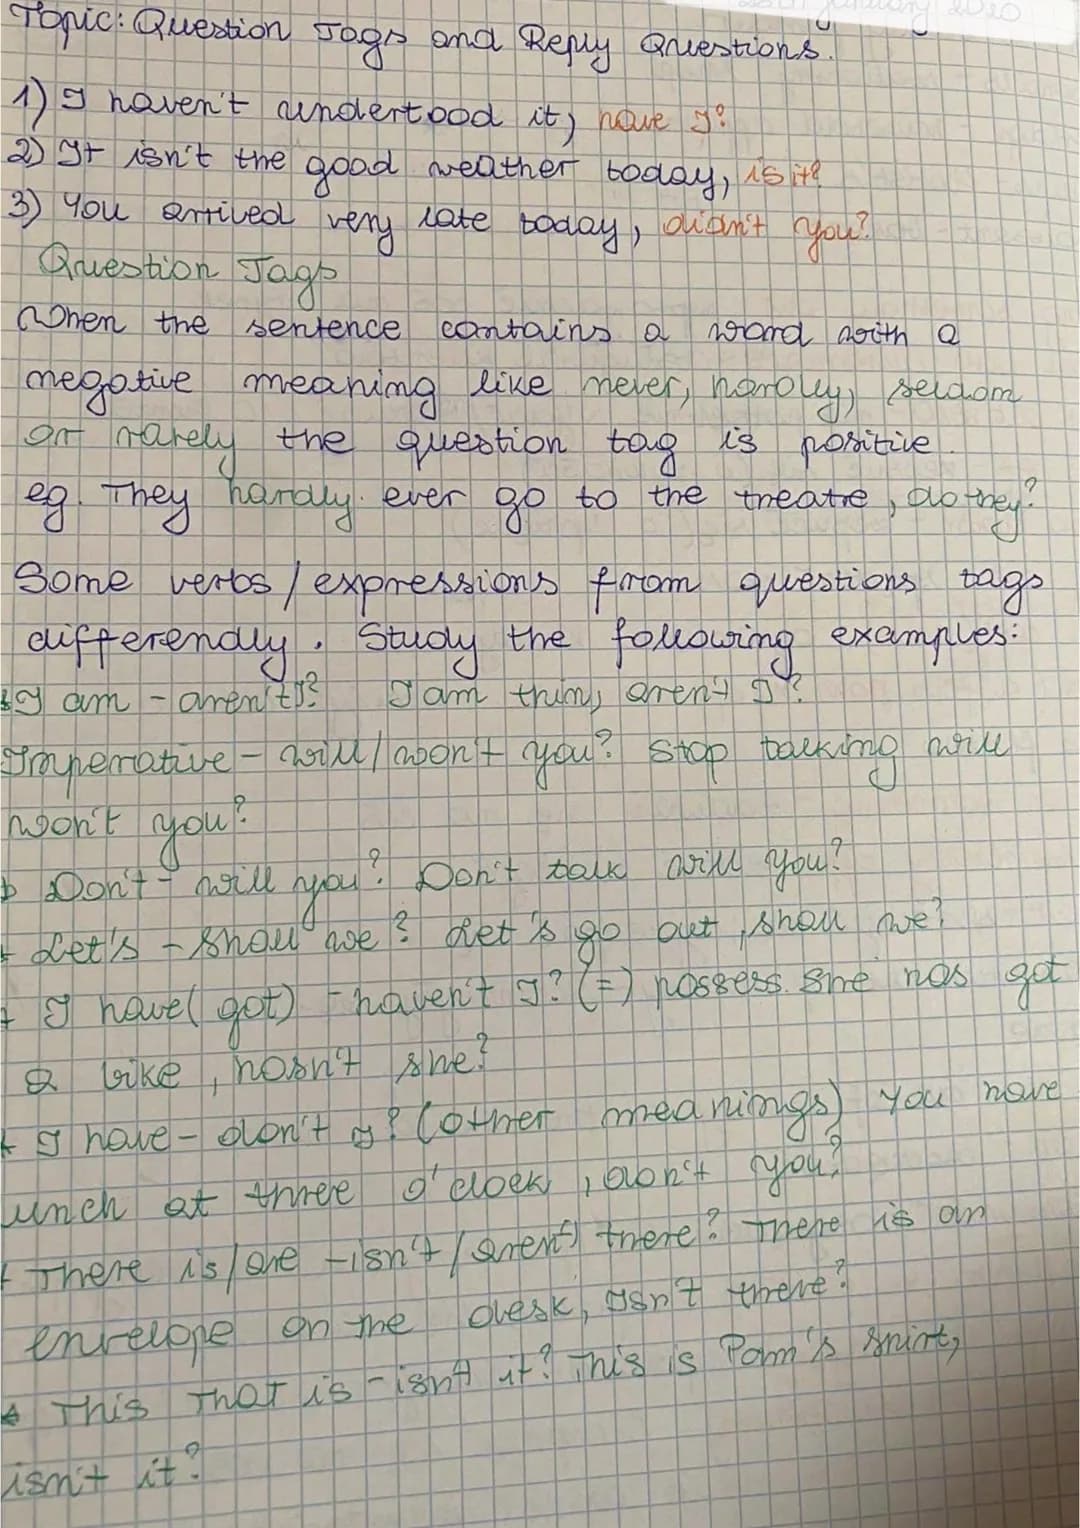 Topic: Question Tags and Reply Questions.
1) I haven't undertood it, have I?
2) It isn't the good weather today, is it?
3) You arrived very late today, didn't you?
Question Tags
When the sentence contains a word with a
negative meaning like never, hardly, seldom
or rarely the question tag is positive.
eg. They hardly ever go to the treatre, do they?
Some verbs / expressions from questions tags
differendly. Study the following examples:
I am - aren't I? I am thin, aren't I?
Imperative - will/won't you? Stop talking will
won't you?
Don't - will you? Don't talk will you?
Let's - shall we? Let's go out, shall we?
I have (got) - haven't I? (=) possess. She has got
a bike, hasn't she?
I have - don't I? (other meanings) You have
lunch at three o'clock, don't you?
There is/are - isn't/aren't there? There is an
envelope on the desk, isn't there?
This That is - isn't it? This is Pam's shirt,
isn't it?